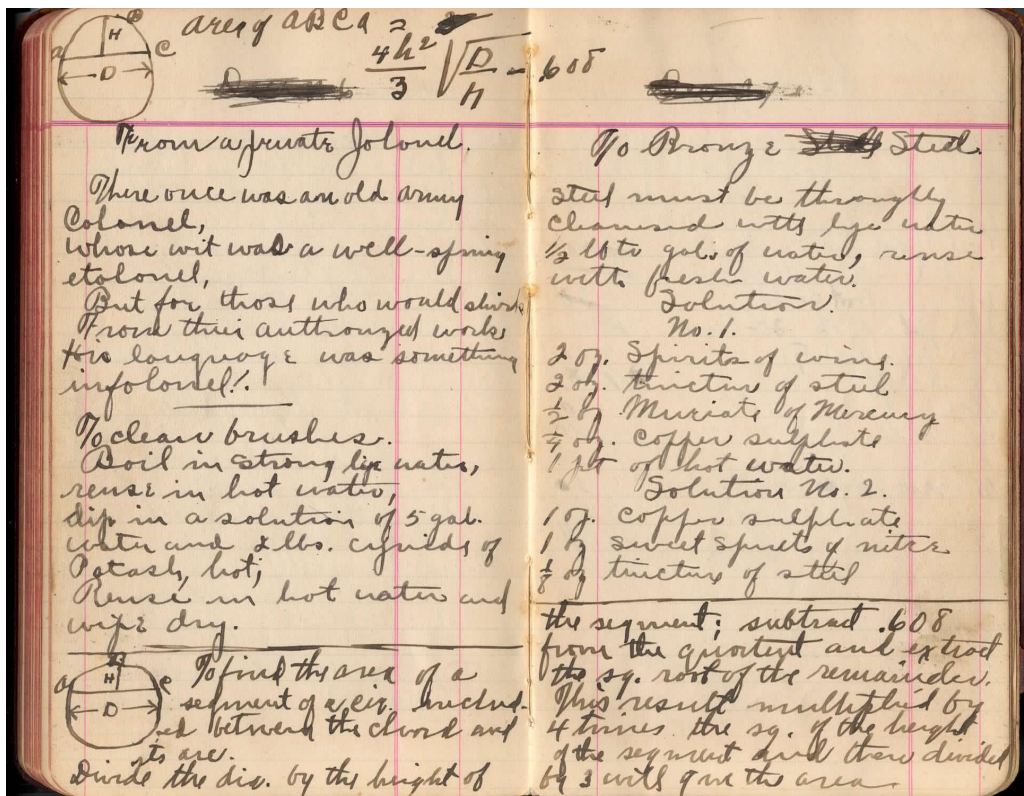 B
H
a C
D
area of ABCA =
4h² / 3 √ D / H - .608
From a private Jolonel.
There once was an old army
Colonel,
whose wit was a well-spring
etolonel,
But for those who would shirk
From their authorized work
His language was something
infolonel!.
To clean brushes.
Boil in strong lye water,
rense in hot water,
dip in a solution of 5 gal.
water and 2 lbs. cyanide of
Potash, hot;
Rense in hot water and
wipe dry.
B
H
a c
D
To find the area of a
segment of a cir. includ-
ed between the chord and
its arc.
Divide the dia. by the height of
To Bronze Steel.
Steel must be throughly
cleanesed with lye water
½ lb to gal. of water, rense
with fresh water.
Solution.
No. 1.
2 oz. Spirits of wine.
2 oz. tinctur of steel
½ oz. Muriate of Mercury
¼ oz. Copper sulphate
1 pt of hot water.
Solution No. 2.
1 oz. Copper sulphate
1 oz sweet Spirets of nitre
⅛ oz tincture of steel
the segment; subtract .608
from the quotient and extract
the sq. root of the remainder.
This result multiplied by
4 times the sq. of the height
of the segment and then divided
by 3 will give the area